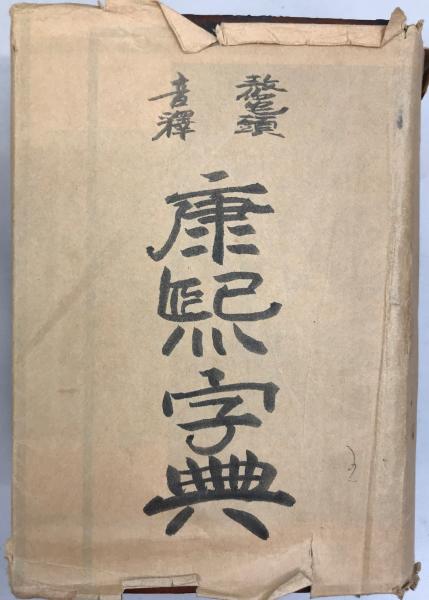 鼇頭
音釋
康熙字典